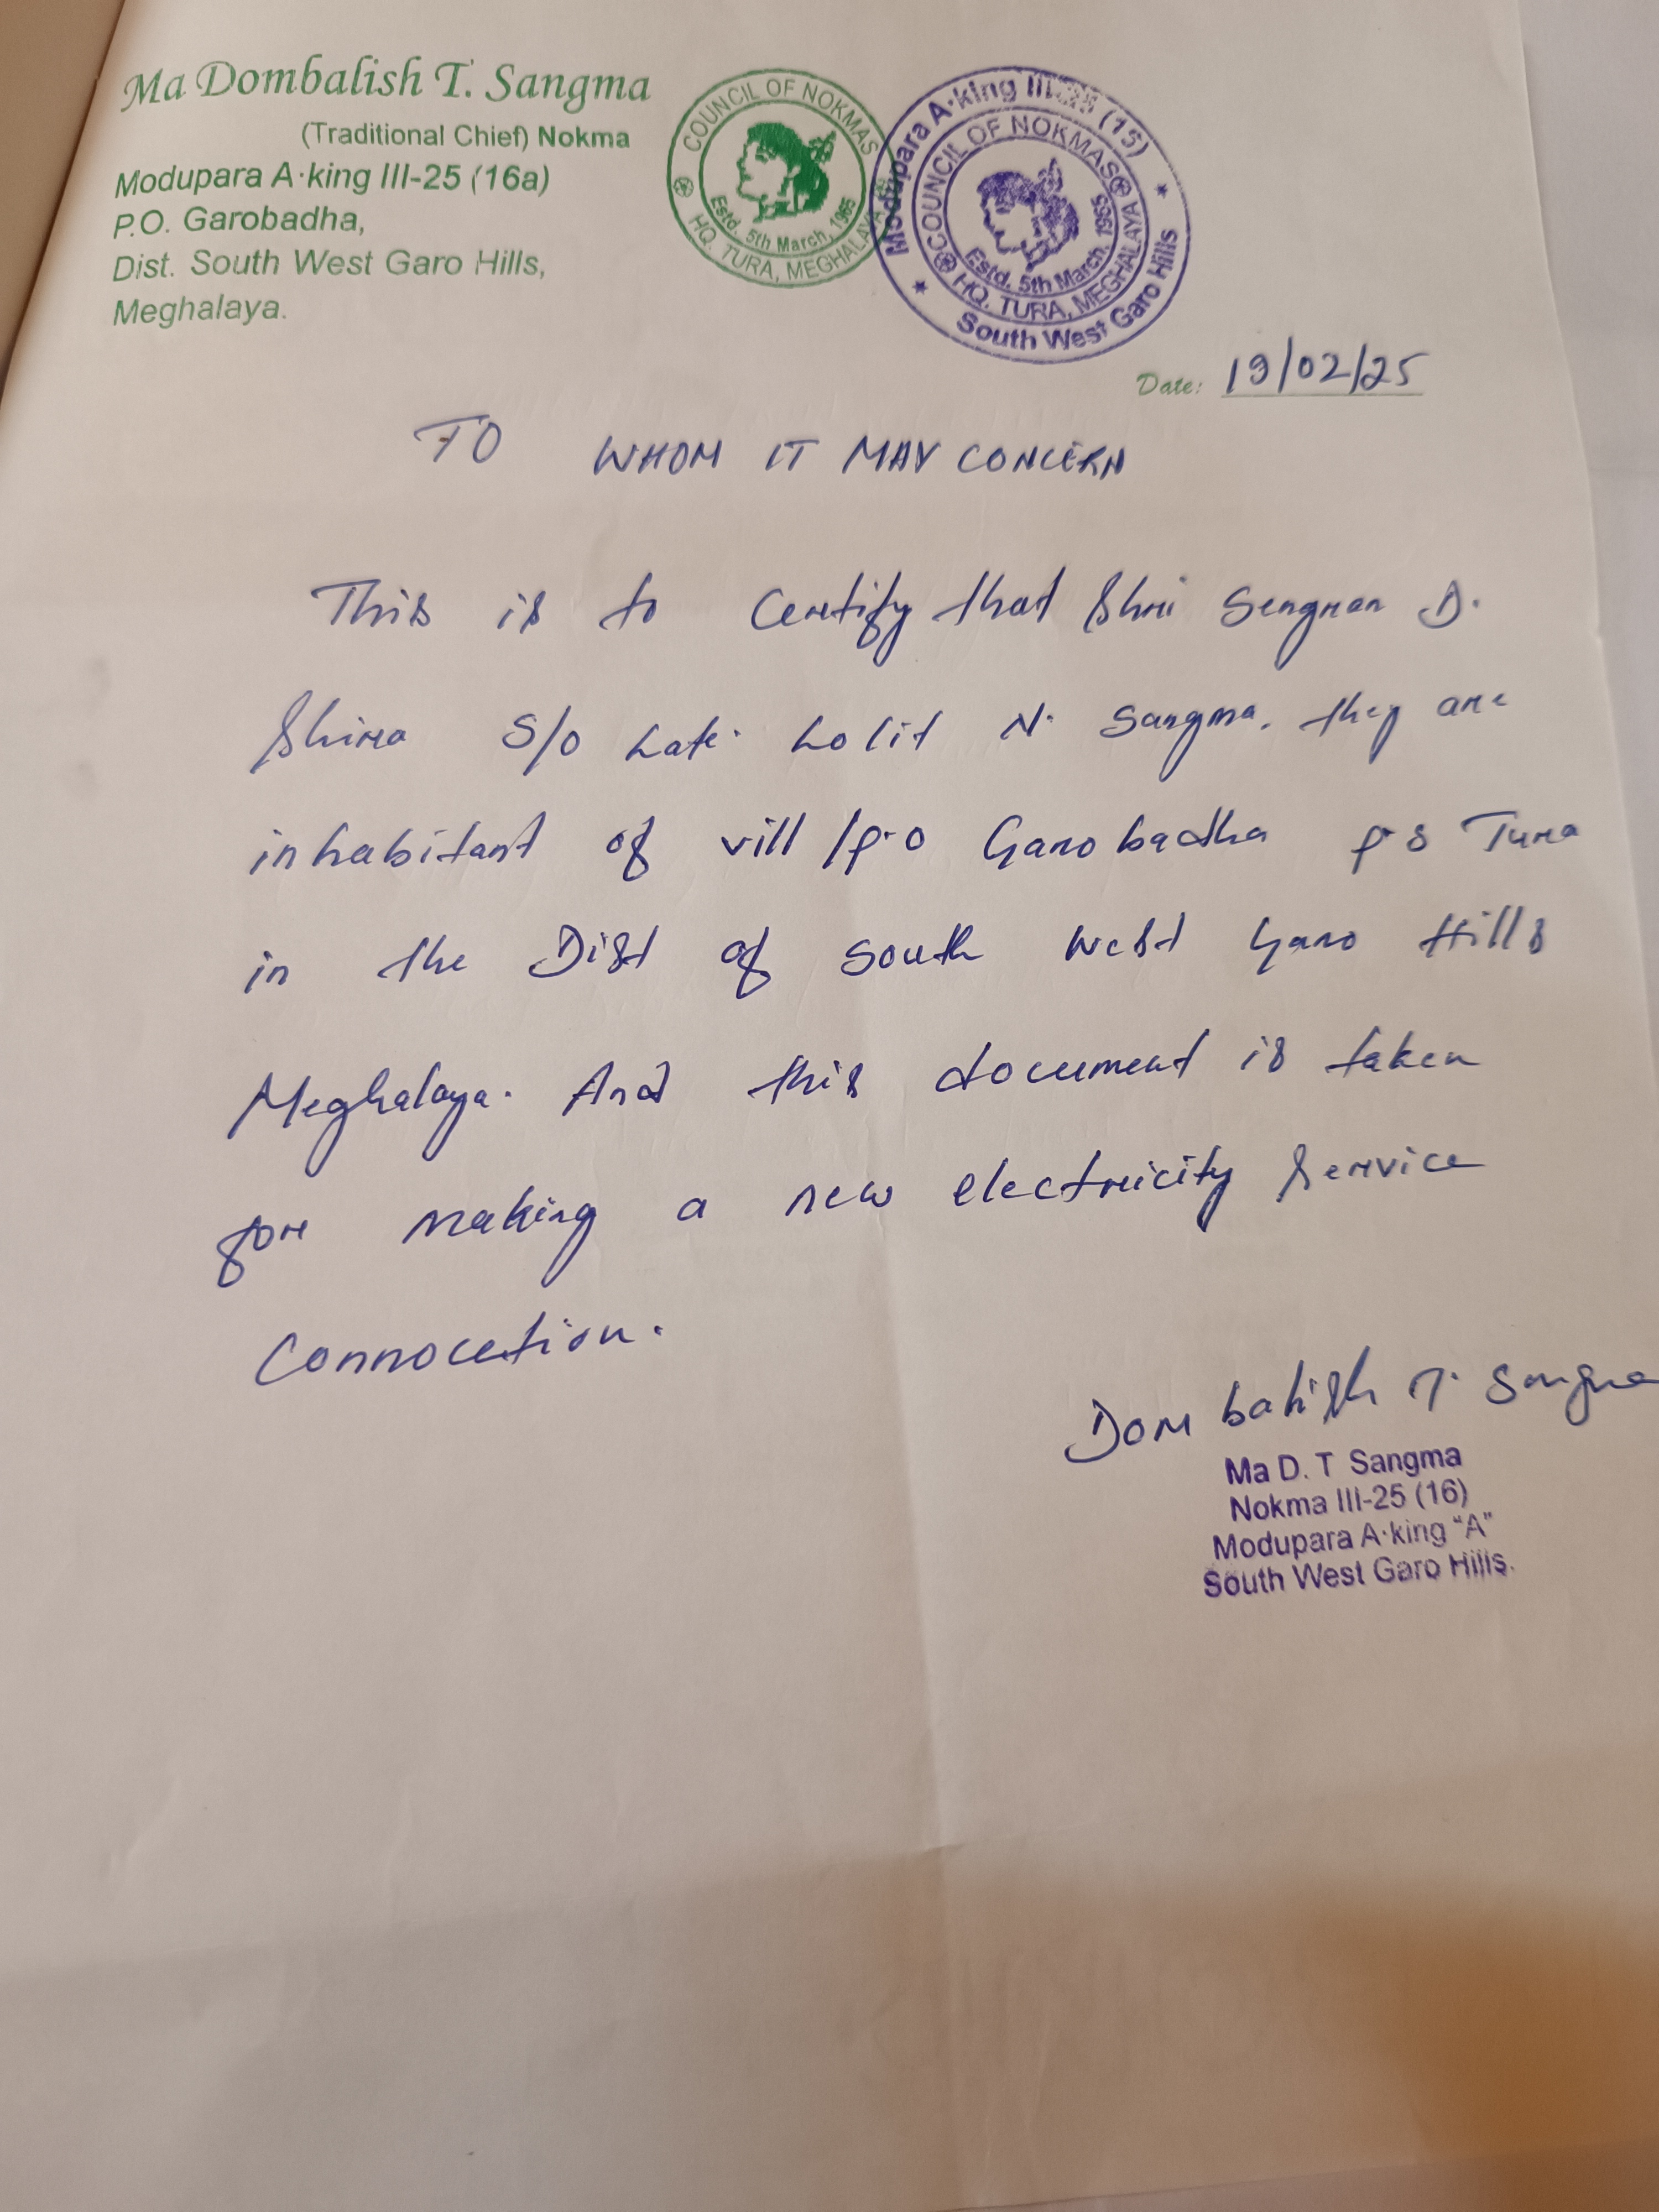 Ma Dombalish T. Sangma
(Traditional Chief) Nokma
Modupara A·king III-25 (16a)
P.O. Garobadha,
Dist. South West Garo Hills,
Meghalaya.
COUNCIL OF NOKMAS
Estd. 5th March, 1965
HQ. TURA, MEGHALAYA
Modupara A·king
COUNCIL OF NOKMAS
Estd. 5th March, 1965
HQ. TURA, MEGHALAYA
South West Garo Hills
Date: 19/02/25
TO WHOM IT MAY CONCERN
This is to Certify that Shri Sengran D.
Shira S/o Late. Lolit N. Sangma. they are
inhabitant of vill/p.o Garobadha p s Tura
in the Dist of South West Garo Hills
Meghalaya. And this document is taken
for making a new electricity Service
Connocetion.
Dombalish T. Sangma
Ma D. T Sangma
Nokma III-25 (16)
Modupara A·king "A"
South West Garo Hills.